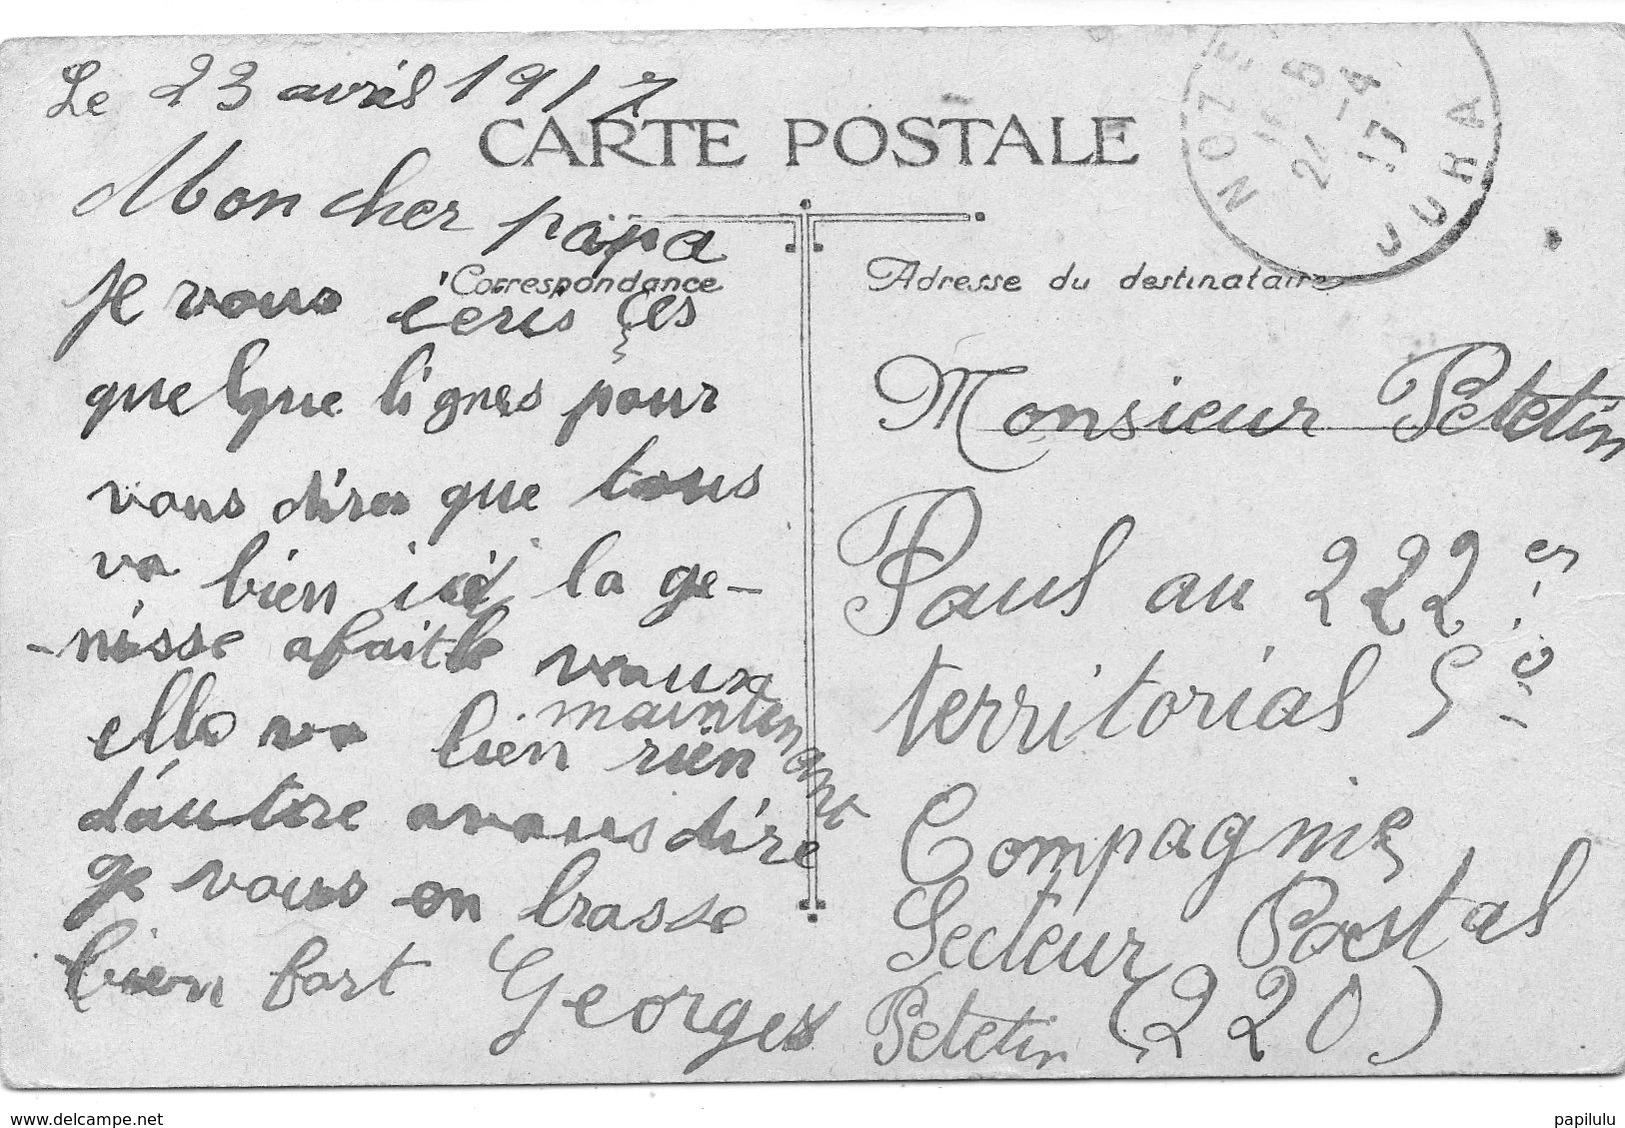 Le 23 avril 1917
CARTE POSTALE
Mon cher papa
Correspondance
je vous ecris ces
quelque lignes pour
vous dires que tous
va bien ici la ge-
-nisse afait le veaux
elle va bien maintenant rien
d'autre avous dire
je vous en brasse
bien fort Georges
NOZE
24 -4
17
JURA
Adresse du destinataire
Monsieur Petetin
Paul au 222 es
territorial 5
Compagnie
Secteur Postal
Petetin (220)
www.delcampe.net
papilulu